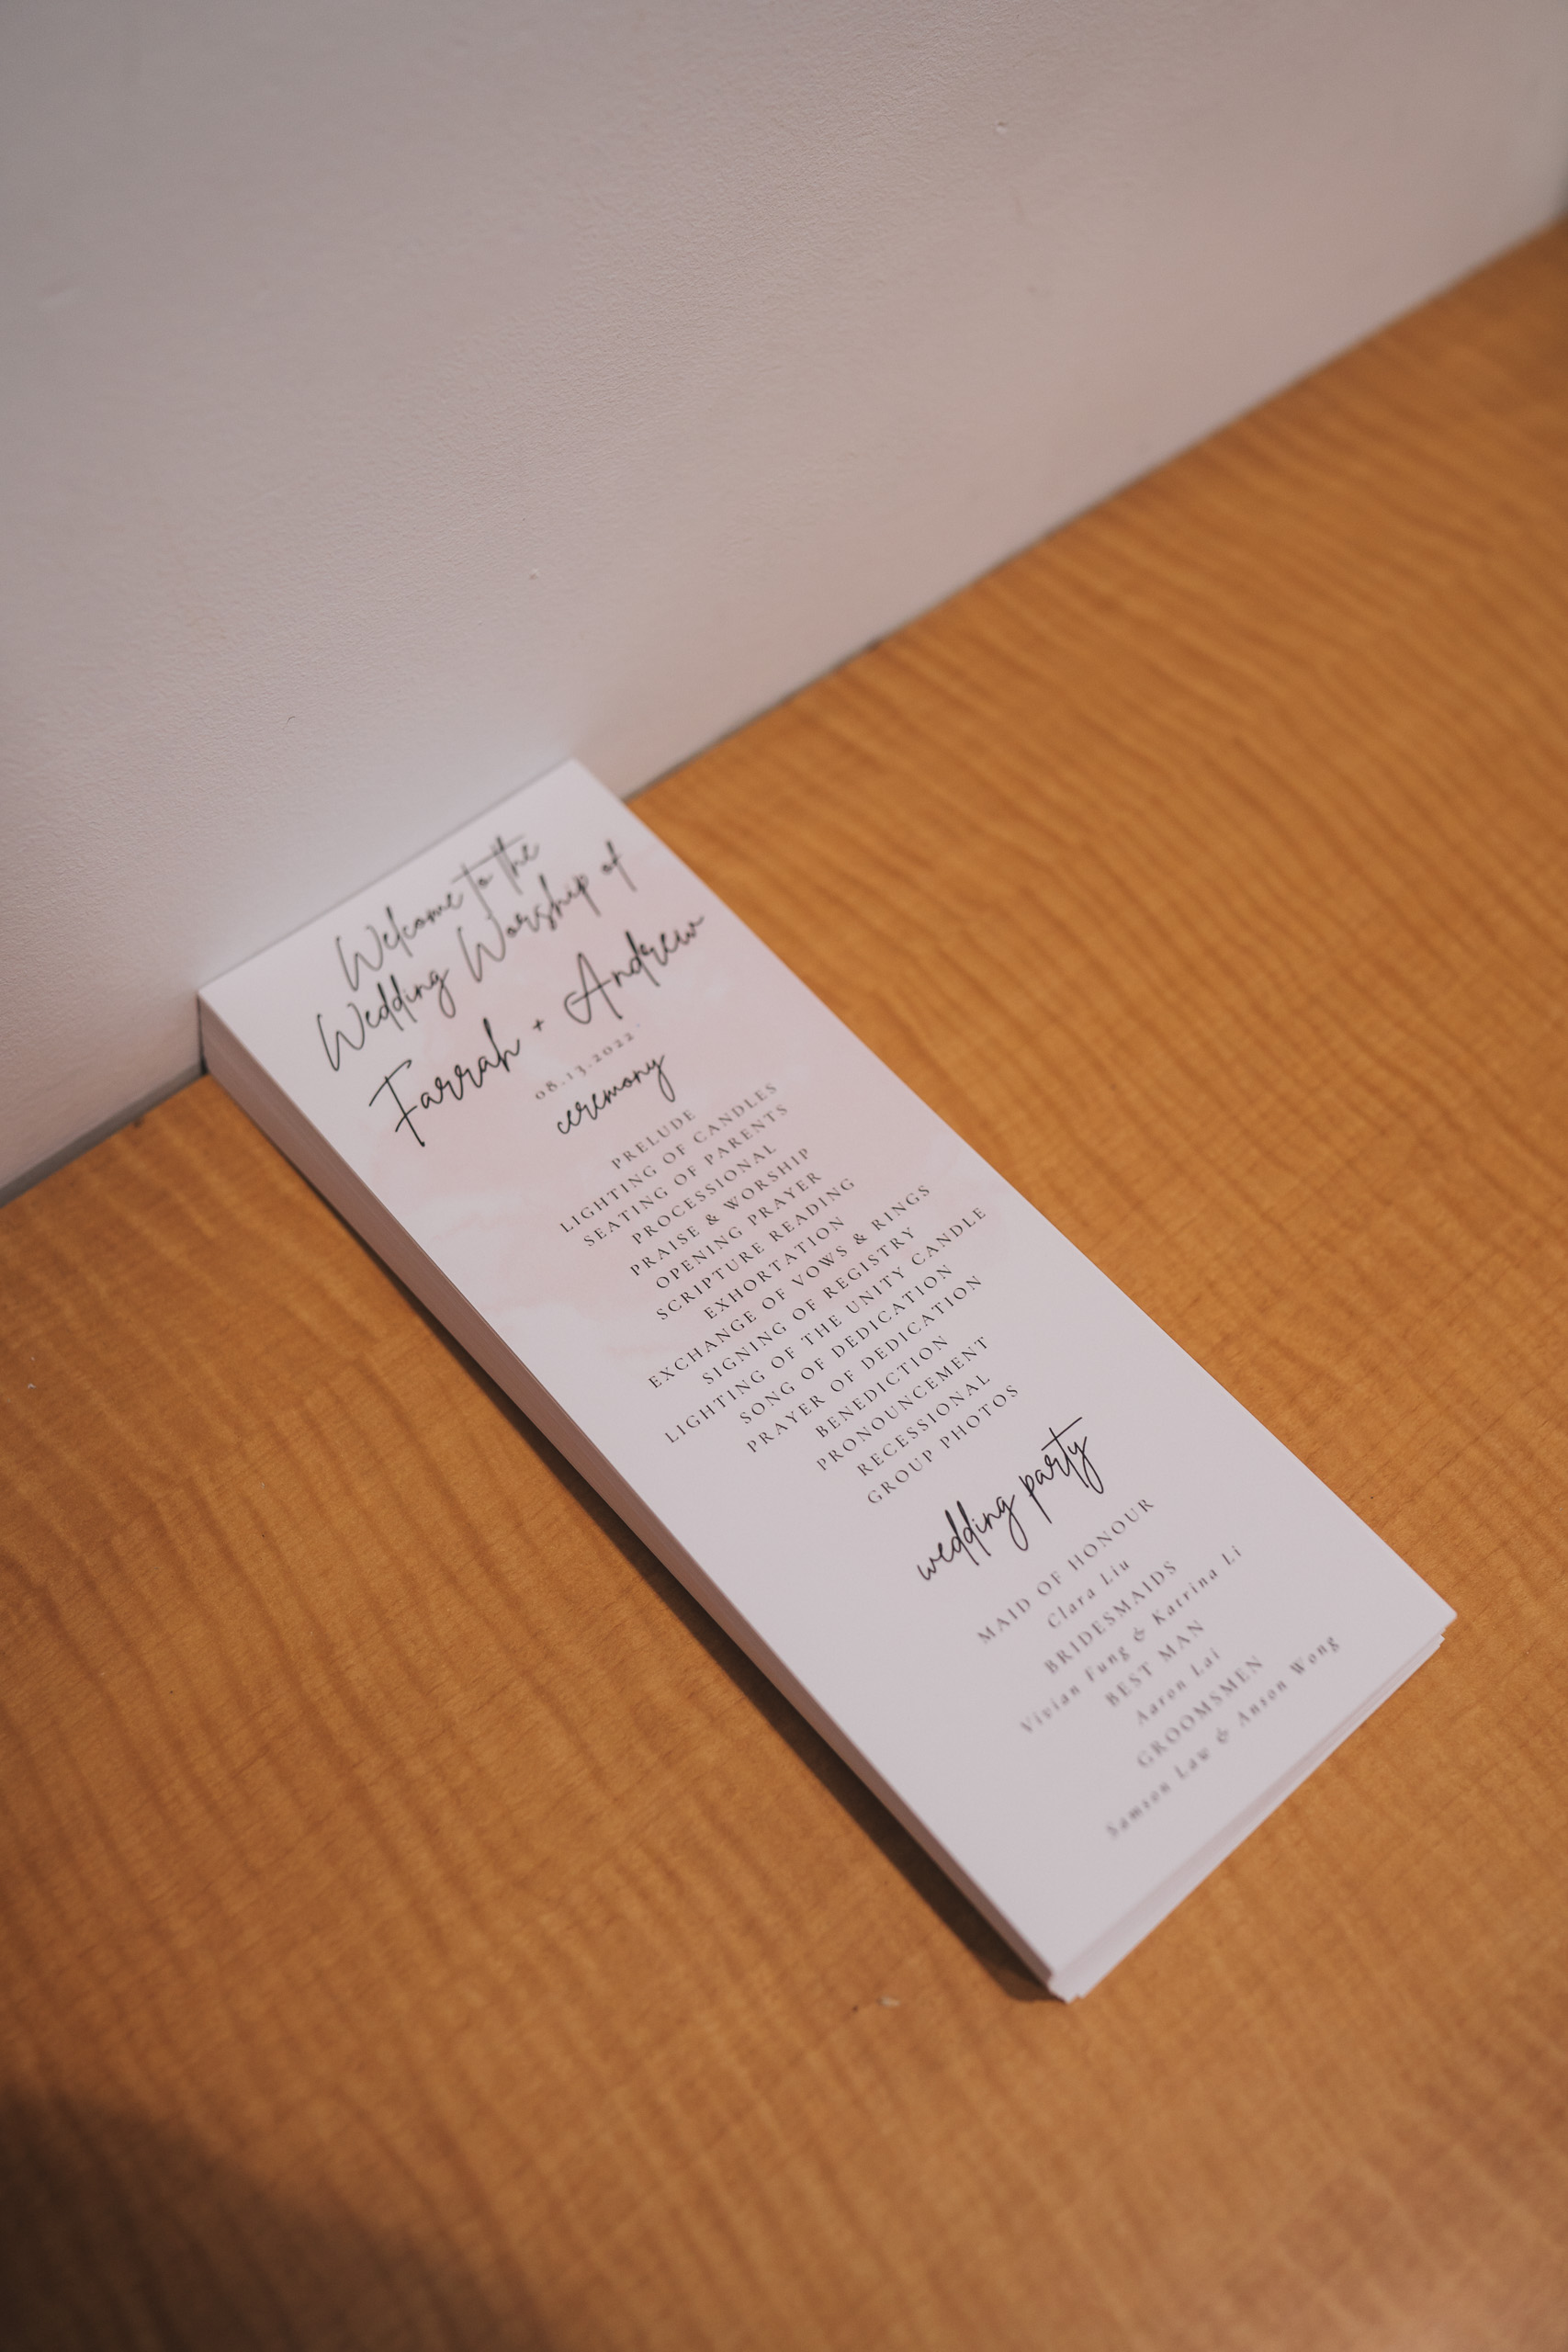 Welcome to the
Wedding Worship of
Farrah + Andrew
08.13.2022
ceremony
PRELUDE
LIGHTING OF CANDLES
SEATING OF PARENTS
PROCESSIONAL
PRAISE & WORSHIP
OPENING PRAYER
SCRIPTURE READING
EXHORTATION
EXCHANGE OF VOWS & RINGS
SIGNING OF REGISTRY
LIGHTING OF THE UNITY CANDLE
SONG OF DEDICATION
PRAYER OF DEDICATION
BENEDICTION
PRONOUNCEMENT
RECESSIONAL
GROUP PHOTOS
wedding party
MAID OF HONOUR
Clara Liu
BRIDESMAIDS
Vivian Fung & Katrina Li
BEST MAN
Aaron Lai
GROOMSMEN
Samson Law & Anson Wong